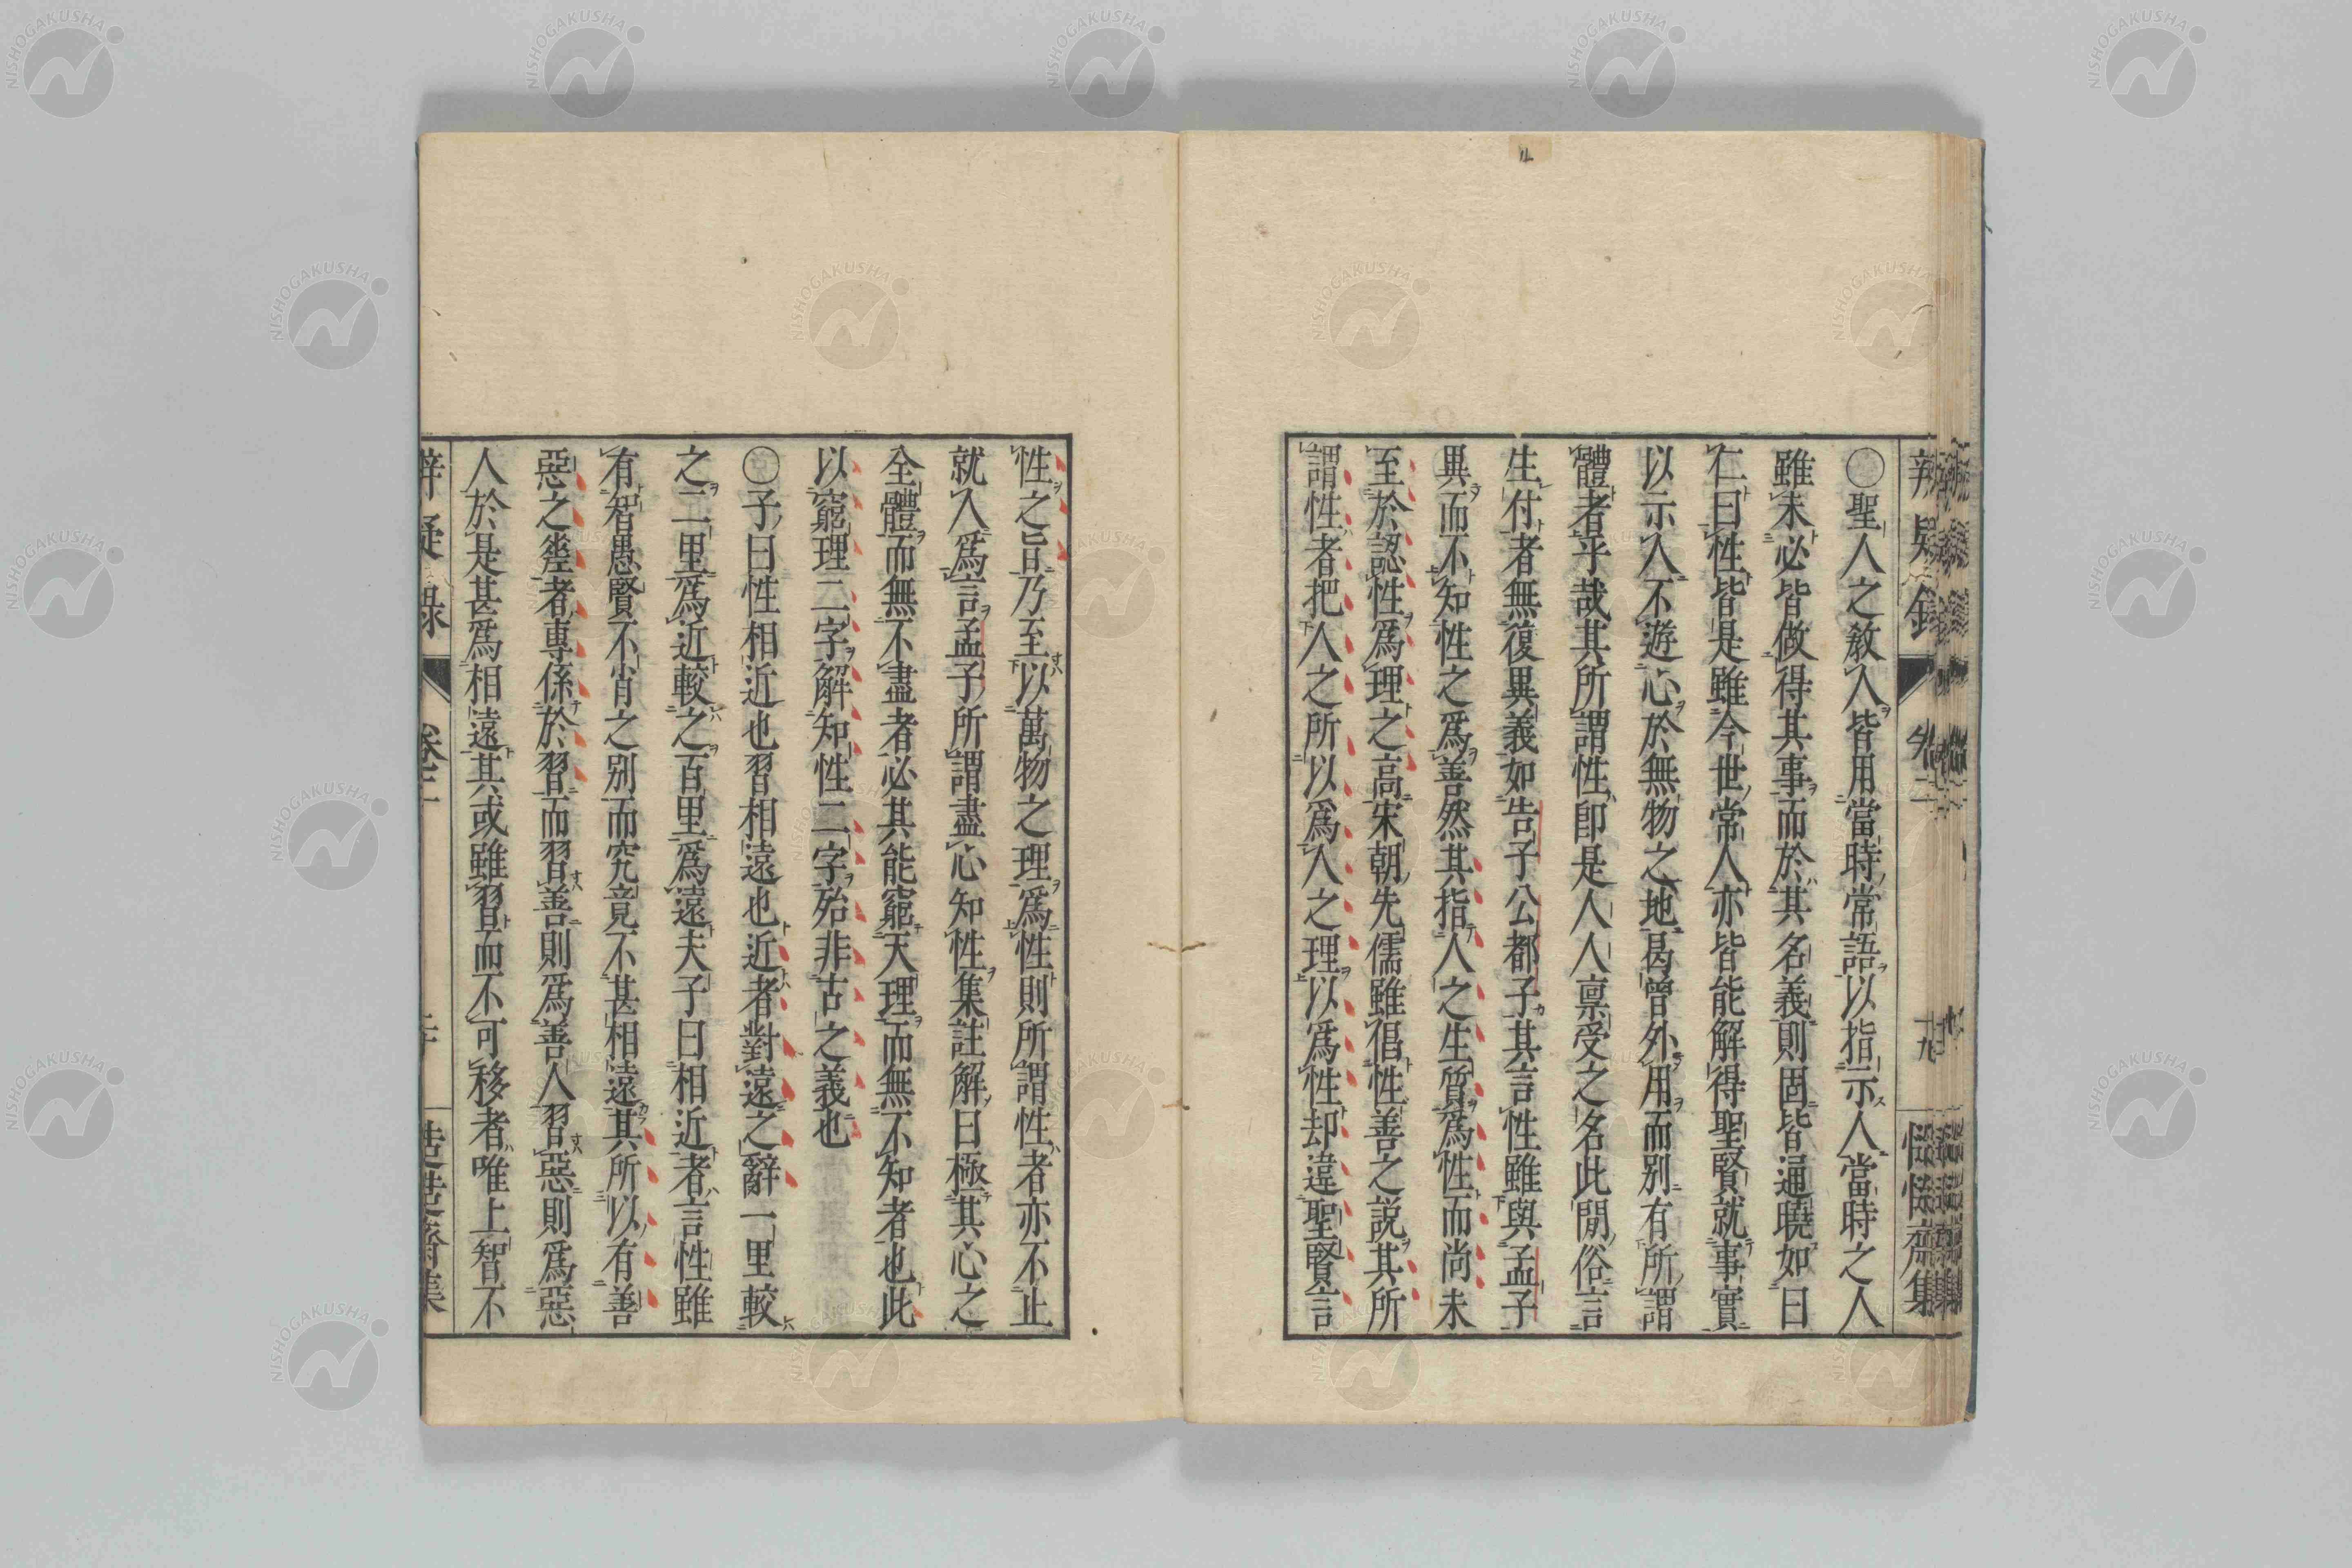 〇聖人之敎人皆用當時常語以指示人當時之人
雖未必皆做得其事而於其名義則固皆通曉如曰
仁曰性皆是雖今世常人亦皆能解得聖賢就事實
以示人不遊心於無物之地曷曾外用而別有所謂
體者乎哉其所謂性卽是人人禀受之名此閒俗言
生付者無復異義如告子公都子其言性雖與孟子
異而不知性之爲善然其指人之生質爲性而尚未
至於認性爲理之高宋朝先儒雖倡性善之說其所
謂性者把人之所以爲人之理以爲性却違聖賢言
性之旨乃至以萬物之理爲性則所謂性者亦不止
就人爲言孟子所謂盡心知性集註解曰極其心之
全體而無不盡者必其能窮天理而無不知者也此
以窮理二字解知性二字殆非古之義也
〇子曰性相近也習相遠也近者對遠之辭一里較
之二里爲近較之百里爲遠夫子曰相近者言性雖
有智愚賢不肖之別而究竟不甚相遠其所以有善
惡之差者專係於習而習善則爲善人習惡則爲惡
人於是甚爲相遠其或雖習而不可移者唯上智不
NISHOGAKUSHA